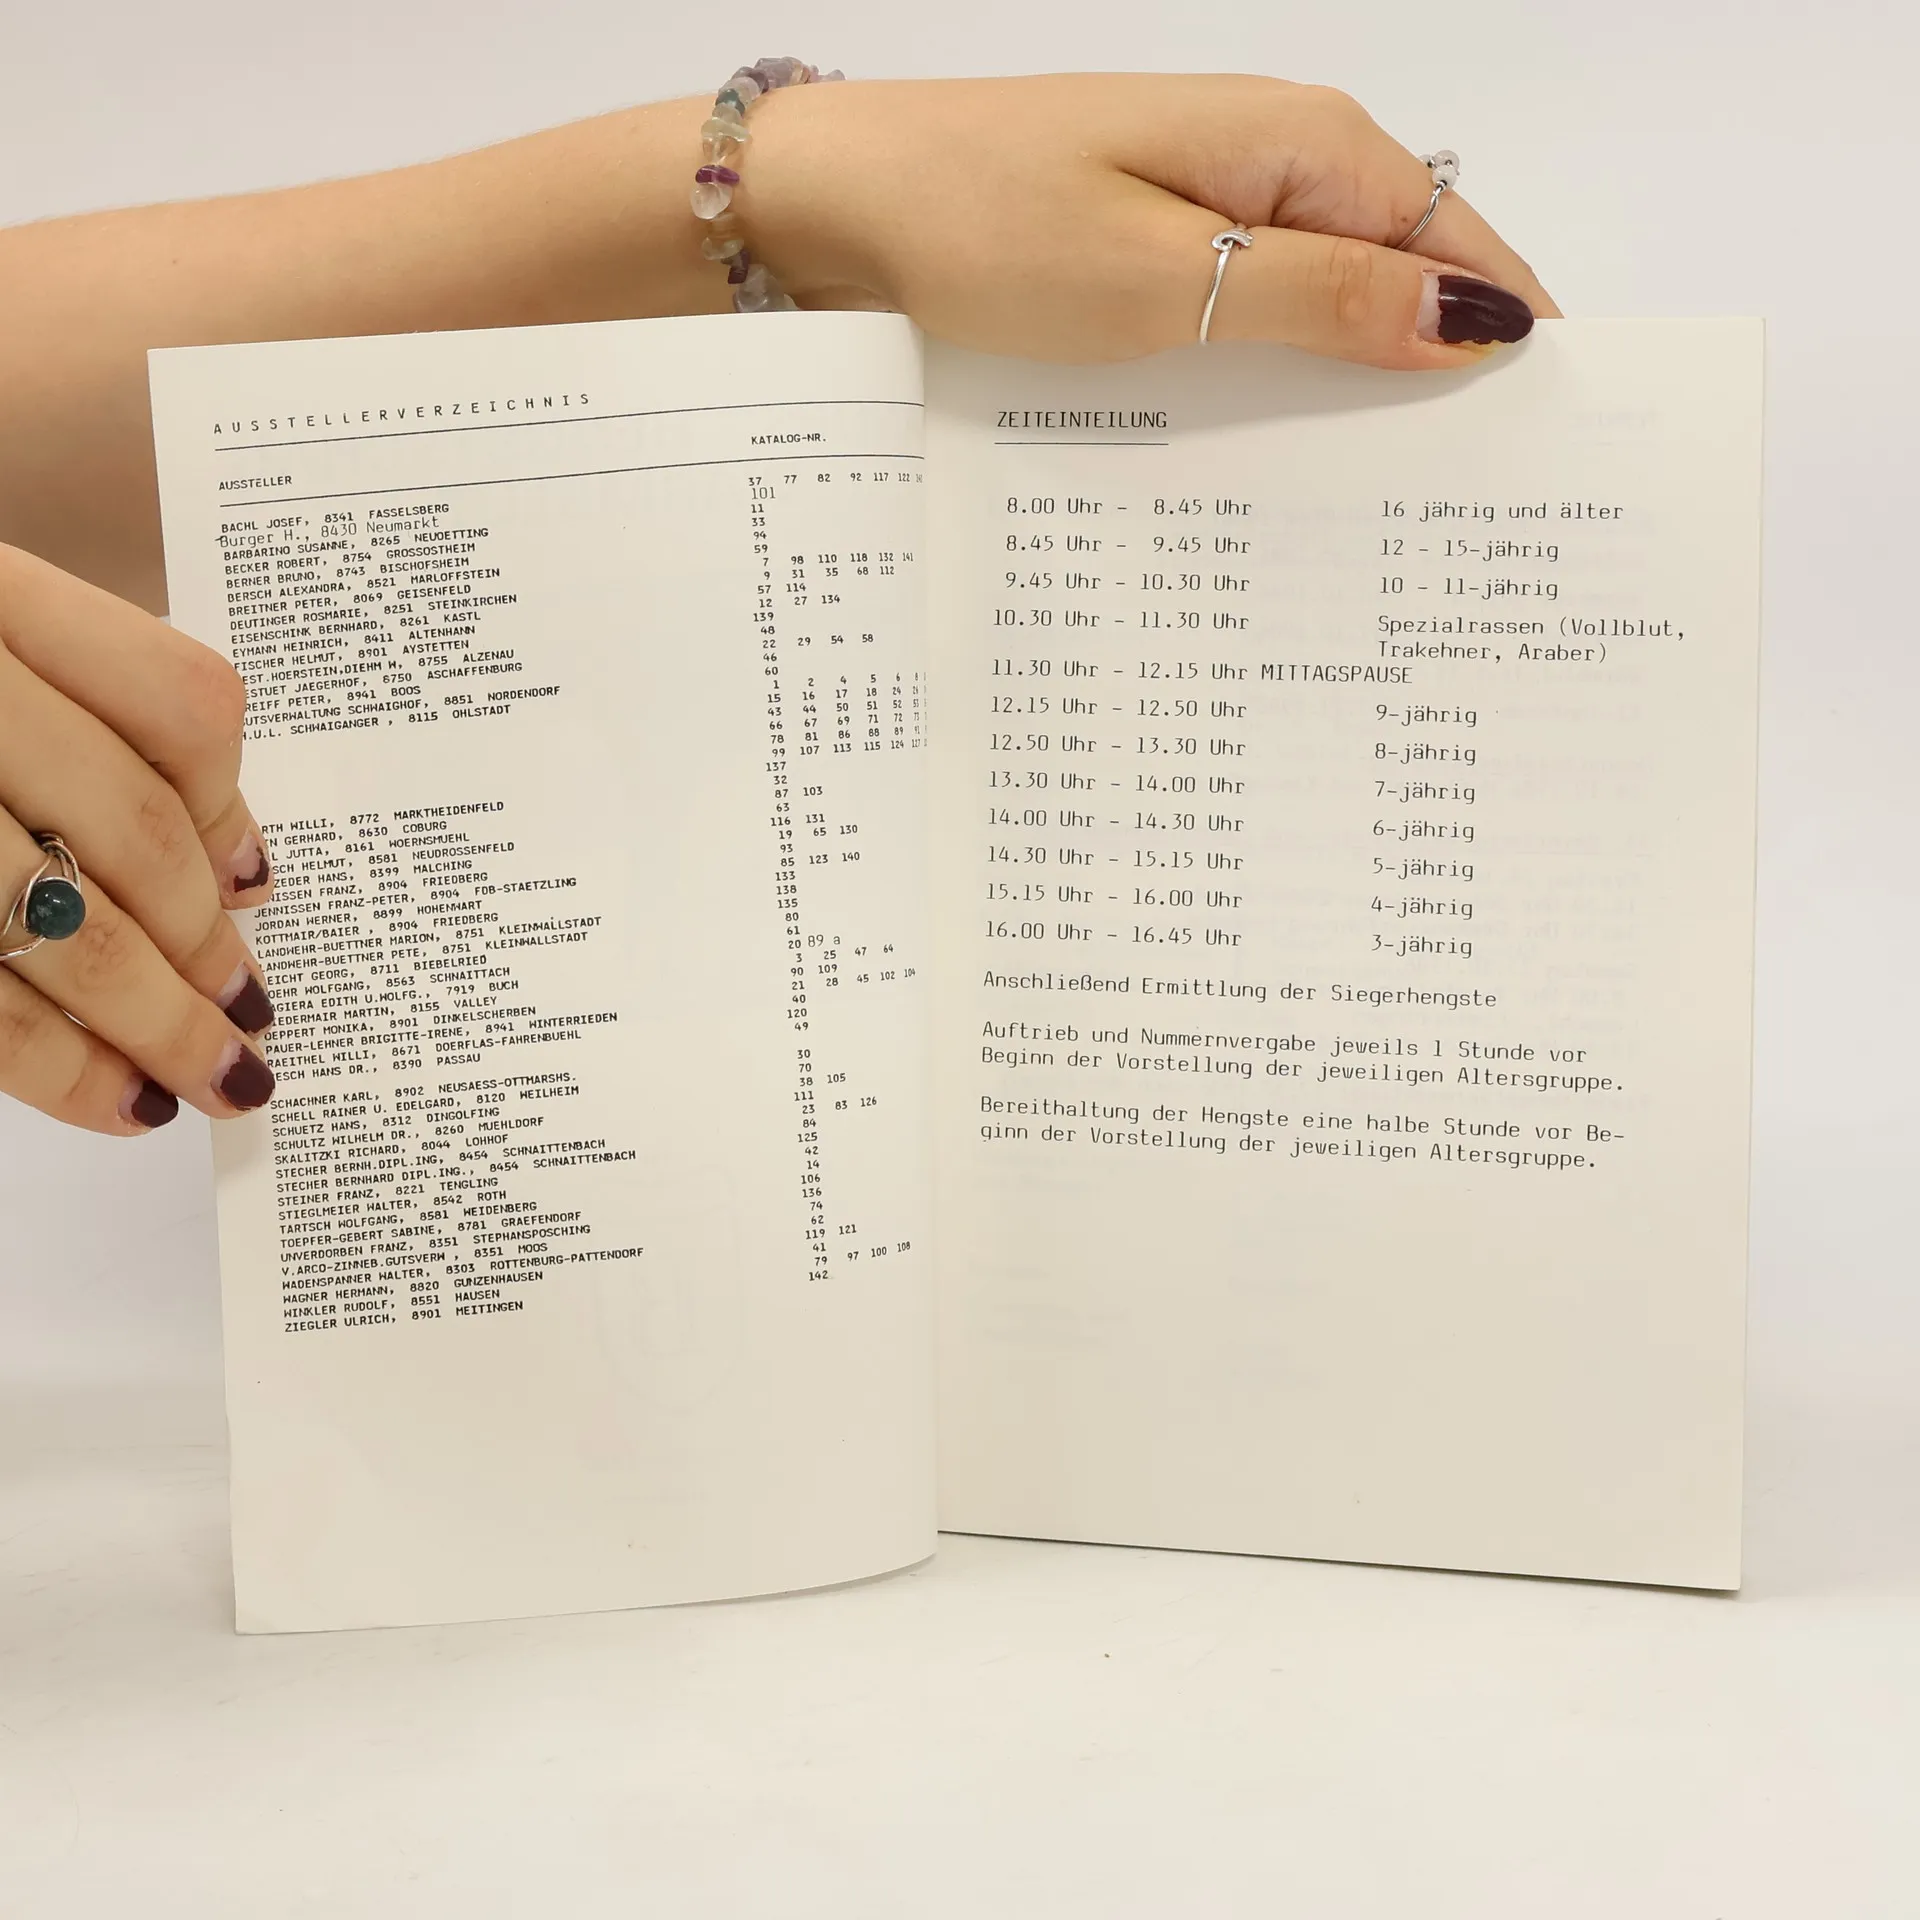 AUSSTELLERVERZEICHNIS
AUSSTELLER
BACHL JOSEF, 8341 FASSELSBERG
Burger H., 8430 Neumarkt
BARBARINO SUSANNE, 8265 NEUOETTING
BECKER ROBERT, 8754 GROSSOSTHEIM
BERNER BRUNO, 8743 BISCHOFSHEIM
DERSCH ALEXANDRA, 8521 MARLOFFSTEIN
BREITNER PETER, 8069 GEISENFELD
DEUTINGER ROSMARIE, 8251 STEINKIRCHEN
EISENSCHINK BERNHARD, 8261 KASTL
EYMANN HEINRICH, 8411 ALTENHANN
FISCHER HELMUT, 8901 AYSTETTEN
EST.HOERSTEIN,DIEHM W, 8755 ALZENAU
ESTUET JAEGERHOF, 8750 ASCHAFFENBURG
REIFF PETER, 8941 BOOS
UTSVERWALTUNG SCHWAIGHOF, 8851 NORDENDORF
H.U.L. SCHWAIGANGER , 8115 OHLSTADT
RTH WILLI, 8772 MARKTHEIDENFELD
N GERHARD, 8630 COBURG
L JUTTA, 8161 WOERNSMUEHL
SCH HELMUT, 8581 NEUDROSSENFELD
ZEDER HANS, 8399 MALCHING
NISSEN FRANZ, 8904 FRIEDBERG
JENNISSEN FRANZ-PETER, 8904 FDB-STAETZLING
JORDAN WERNER, 8899 HOHENWART
KOTTMAIR/BAIER , 8904 FRIEDBERG
LANDWEHR-BUETTNER MARION, 8751 KLEINWALLSTADT
LANDWEHR-BUETTNER PETE, 8751 KLEINWALLSTADT
EICHT GEORG, 8711 BIEBELRIED
OEHR WOLFGANG, 8563 SCHNAITTACH
AGIERA EDITH U.WOLFG., 7919 BUCH
IEDERMAIR MARTIN, 8155 VALLEY
OEPPERT MONIKA, 8901 DINKELSCHERBEN
PAUER-LEHNER BRIGITTE-IRENE, 8941 WINTERRIEDEN
RAEITHEL WILLI, 8671 DOERFLAS-FAHRENBUEHL
ESCH HANS DR., 8390 PASSAU
SCHACHNER KARL, 8902 NEUSAESS-OTTMARSHS.
SCHELL RAINER U. EDELGARD, 8120 WEILHEIM
SCHUETZ HANS, 8312 DINGOLFING
SCHULTZ WILHELM DR., 8260 MUEHLDORF
SKALITZKI RICHARD, 8044 LOHHOF
STECHER BERNH.DIPL.ING, 8454 SCHNAITTENBACH
STECHER BERNHARD DIPL.ING., 8454 SCHNAITTENBACH
STEINER FRANZ, 8221 TENGLING
STIEGLMEIER WALTER, 8542 ROTH
TARTSCH WOLFGANG, 8581 WEIDENBERG
TOEPFER-GEBERT SABINE, 8781 GRAEFENDORF
UNVERDORBEN FRANZ, 8351 STEPHANSPOSCHING
V.ARCO-ZINNEB.GUTSVERW , 8351 MOOS
WADENSPANNER WALTER, 8303 ROTTENBURG-PATTENDORF
WAGNER HERMANN, 8820 GUNZENHAUSEN
WINKLER RUDOLF, 8551 HAUSEN
ZIEGLER ULRICH, 8901 MEITINGEN
KATALOG-NR.
37 77 82 92 117 122
101
11
33
94
59
7 98 110 118 132 141
9 31 35 68 112
57 114
12 27 134
139
48
22 29 54 58
46
60
1 2 4 5 6 8
15 16 17 18 24 26
43 44 50 51 52 53
66 67 69 71 72
78 81 86 88 89
99 107 113 115 124 127
137
32
87 103
63
116 131
19 65 130
93
85 123 140
133
138
135
80
61
20 89 a
3 25 47 64
90 109
21 28 45 102 104
40
120
49
30
70
38 105
111
23 83 126
84
125
42
14
106
136
74
62
119 121
41
79 97 100 108
142
ZEITEINTEILUNG
8.00 Uhr - 8.45 Uhr 16 jährig und älter
8.45 Uhr - 9.45 Uhr 12 - 15-jährig
9.45 Uhr - 10.30 Uhr 10 - 11-jährig
10.30 Uhr - 11.30 Uhr Spezialrassen (Vollblut,
Trakehner, Araber)
11.30 Uhr - 12.15 Uhr MITTAGSPAUSE
12.15 Uhr - 12.50 Uhr 9-jährig
12.50 Uhr - 13.30 Uhr 8-jährig
13.30 Uhr - 14.00 Uhr 7-jährig
14.00 Uhr - 14.30 Uhr 6-jährig
14.30 Uhr - 15.15 Uhr 5-jährig
15.15 Uhr - 16.00 Uhr 4-jährig
16.00 Uhr - 16.45 Uhr 3-jährig
Anschließend Ermittlung der Siegerhengste
Auftrieb und Nummernvergabe jeweils 1 Stunde vor
Beginn der Vorstellung der jeweiligen Altersgruppe.
Bereithaltung der Hengste eine halbe Stunde vor Be-
ginn der Vorstellung der jeweiligen Altersgruppe.